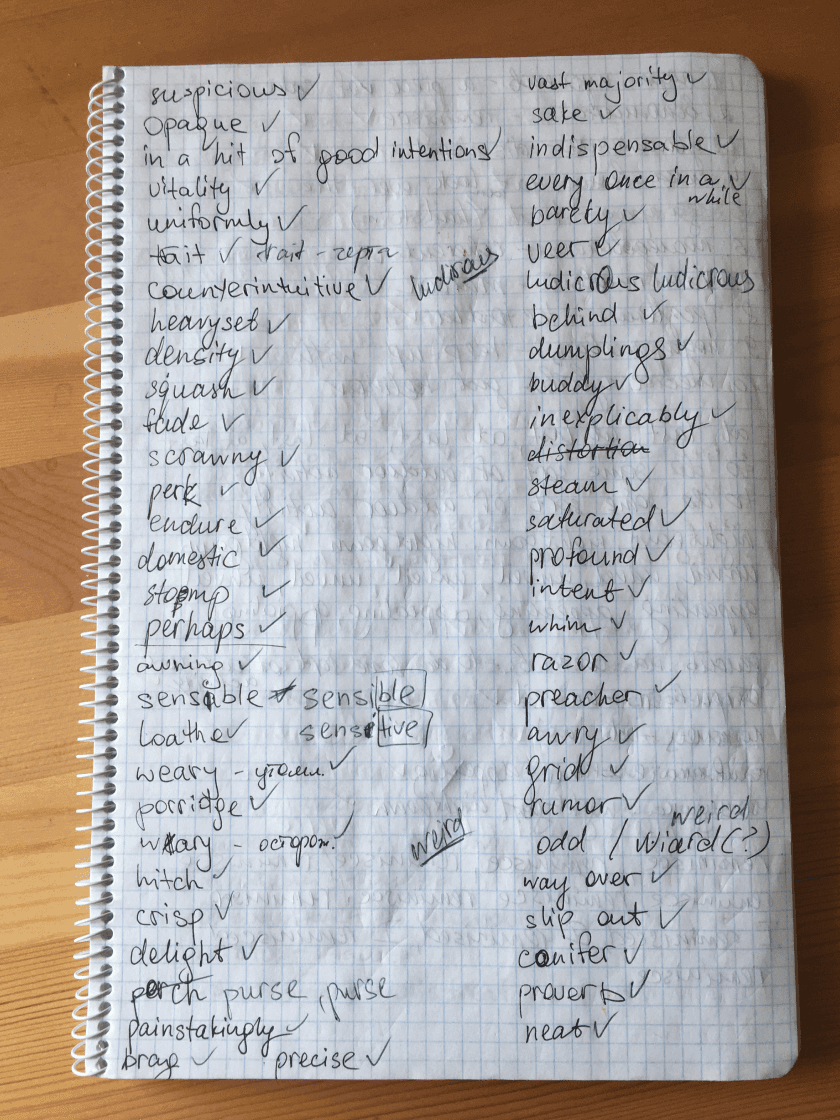 suspicious ✓
opaque ✓
in a hit of good intentions ✓
vitality ✓
uniformly ✓
tait ✓ trait - черта
counterintuitive ✓
ludicrous
heavyset ✓
density ✓
squash ✓
fade ✓
scrawny ✓
perk ✓
endure ✓
domestic ✓
stomp ✓
perhaps ✓
awning ✓
sensible sensible
loathe ✓ sensitive
weary - утомл. ✓
porridge ✓
wary - осторож. ✓
weird
hitch ✓
crisp ✓
delight ✓
perch purse, purse
painstakingly ✓
brag ✓ precise ✓
vast majority ✓
sake ✓
indispensable ✓
every once in a ✓
while
barely ✓
veer ✓
ludicrous ludicrous
behind ✓
dumplings ✓
buddy ✓
inexplicably ✓
distortion
steam ✓
saturated ✓
profound ✓
intent ✓
whim ✓
razor ✓
preacher ✓
awry ✓
grid ✓
rumor ✓
weird
odd / wiard (?)
way over ✓
slip out ✓
conifer ✓
proverb ✓
neat ✓